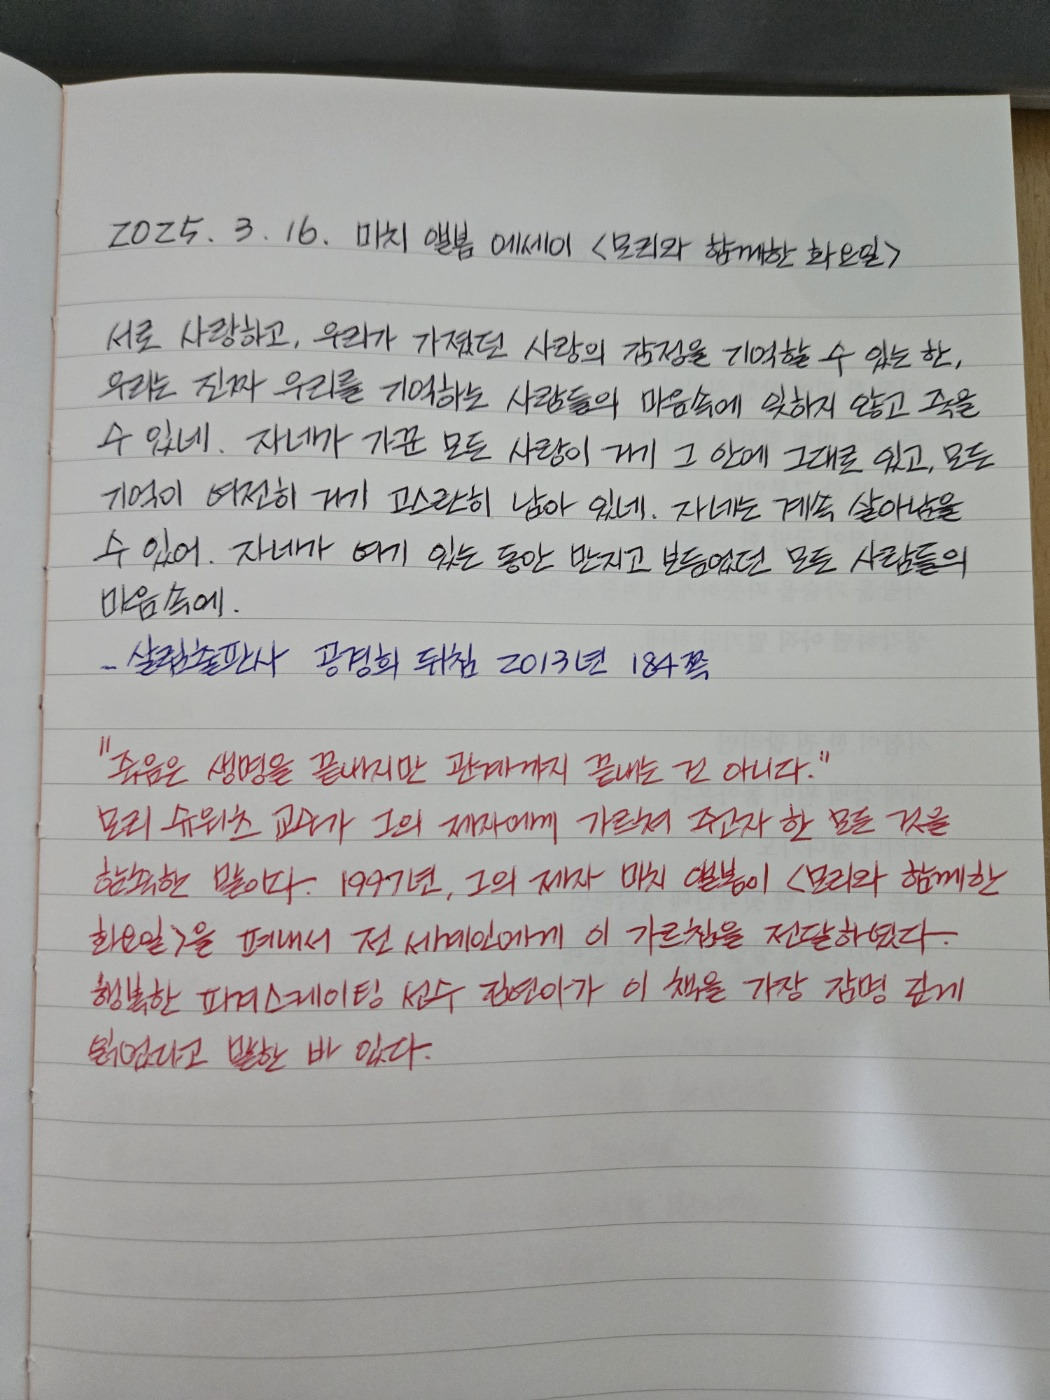 2025. 3. 16. 미치 앨봄 에세이 <모리와 함께한 화요일>
서로 사랑하고, 우리가 가졌던 사랑의 감정을 기억할 수 있는 한,
우리는 진짜 우리를 기억하는 사람들의 마음속에 잊히지 않고 죽을
수 있네. 자네가 가꾼 모든 사랑이 거기 그 안에 그대로 있고, 모든
기억이 여전히 거기 고스란히 남아 있네. 자네는 계속 살아남을
수 있어. 자네가 여기 있는 동안 만지고 보듬었던 모든 사람들의
마음속에.
- 살림출판사 공경희 뒤침 2013년 184쪽
"죽음은 생명을 끝내지만 관계까지 끝내는 건 아니다."
모리 슈워츠 교수가 그의 제자에게 가르쳐 주고자 한 모든 것을
함축한 말이다. 1997년, 그의 제자 미치 앨봄이 <모리와 함께한
화요일>을 펴내서 전 세계인에게 이 가르침을 전달하였다.
행복한 피겨스케이팅 선수 김연아가 이 책을 가장 감명 깊게
읽었다고 말한 바 있다.